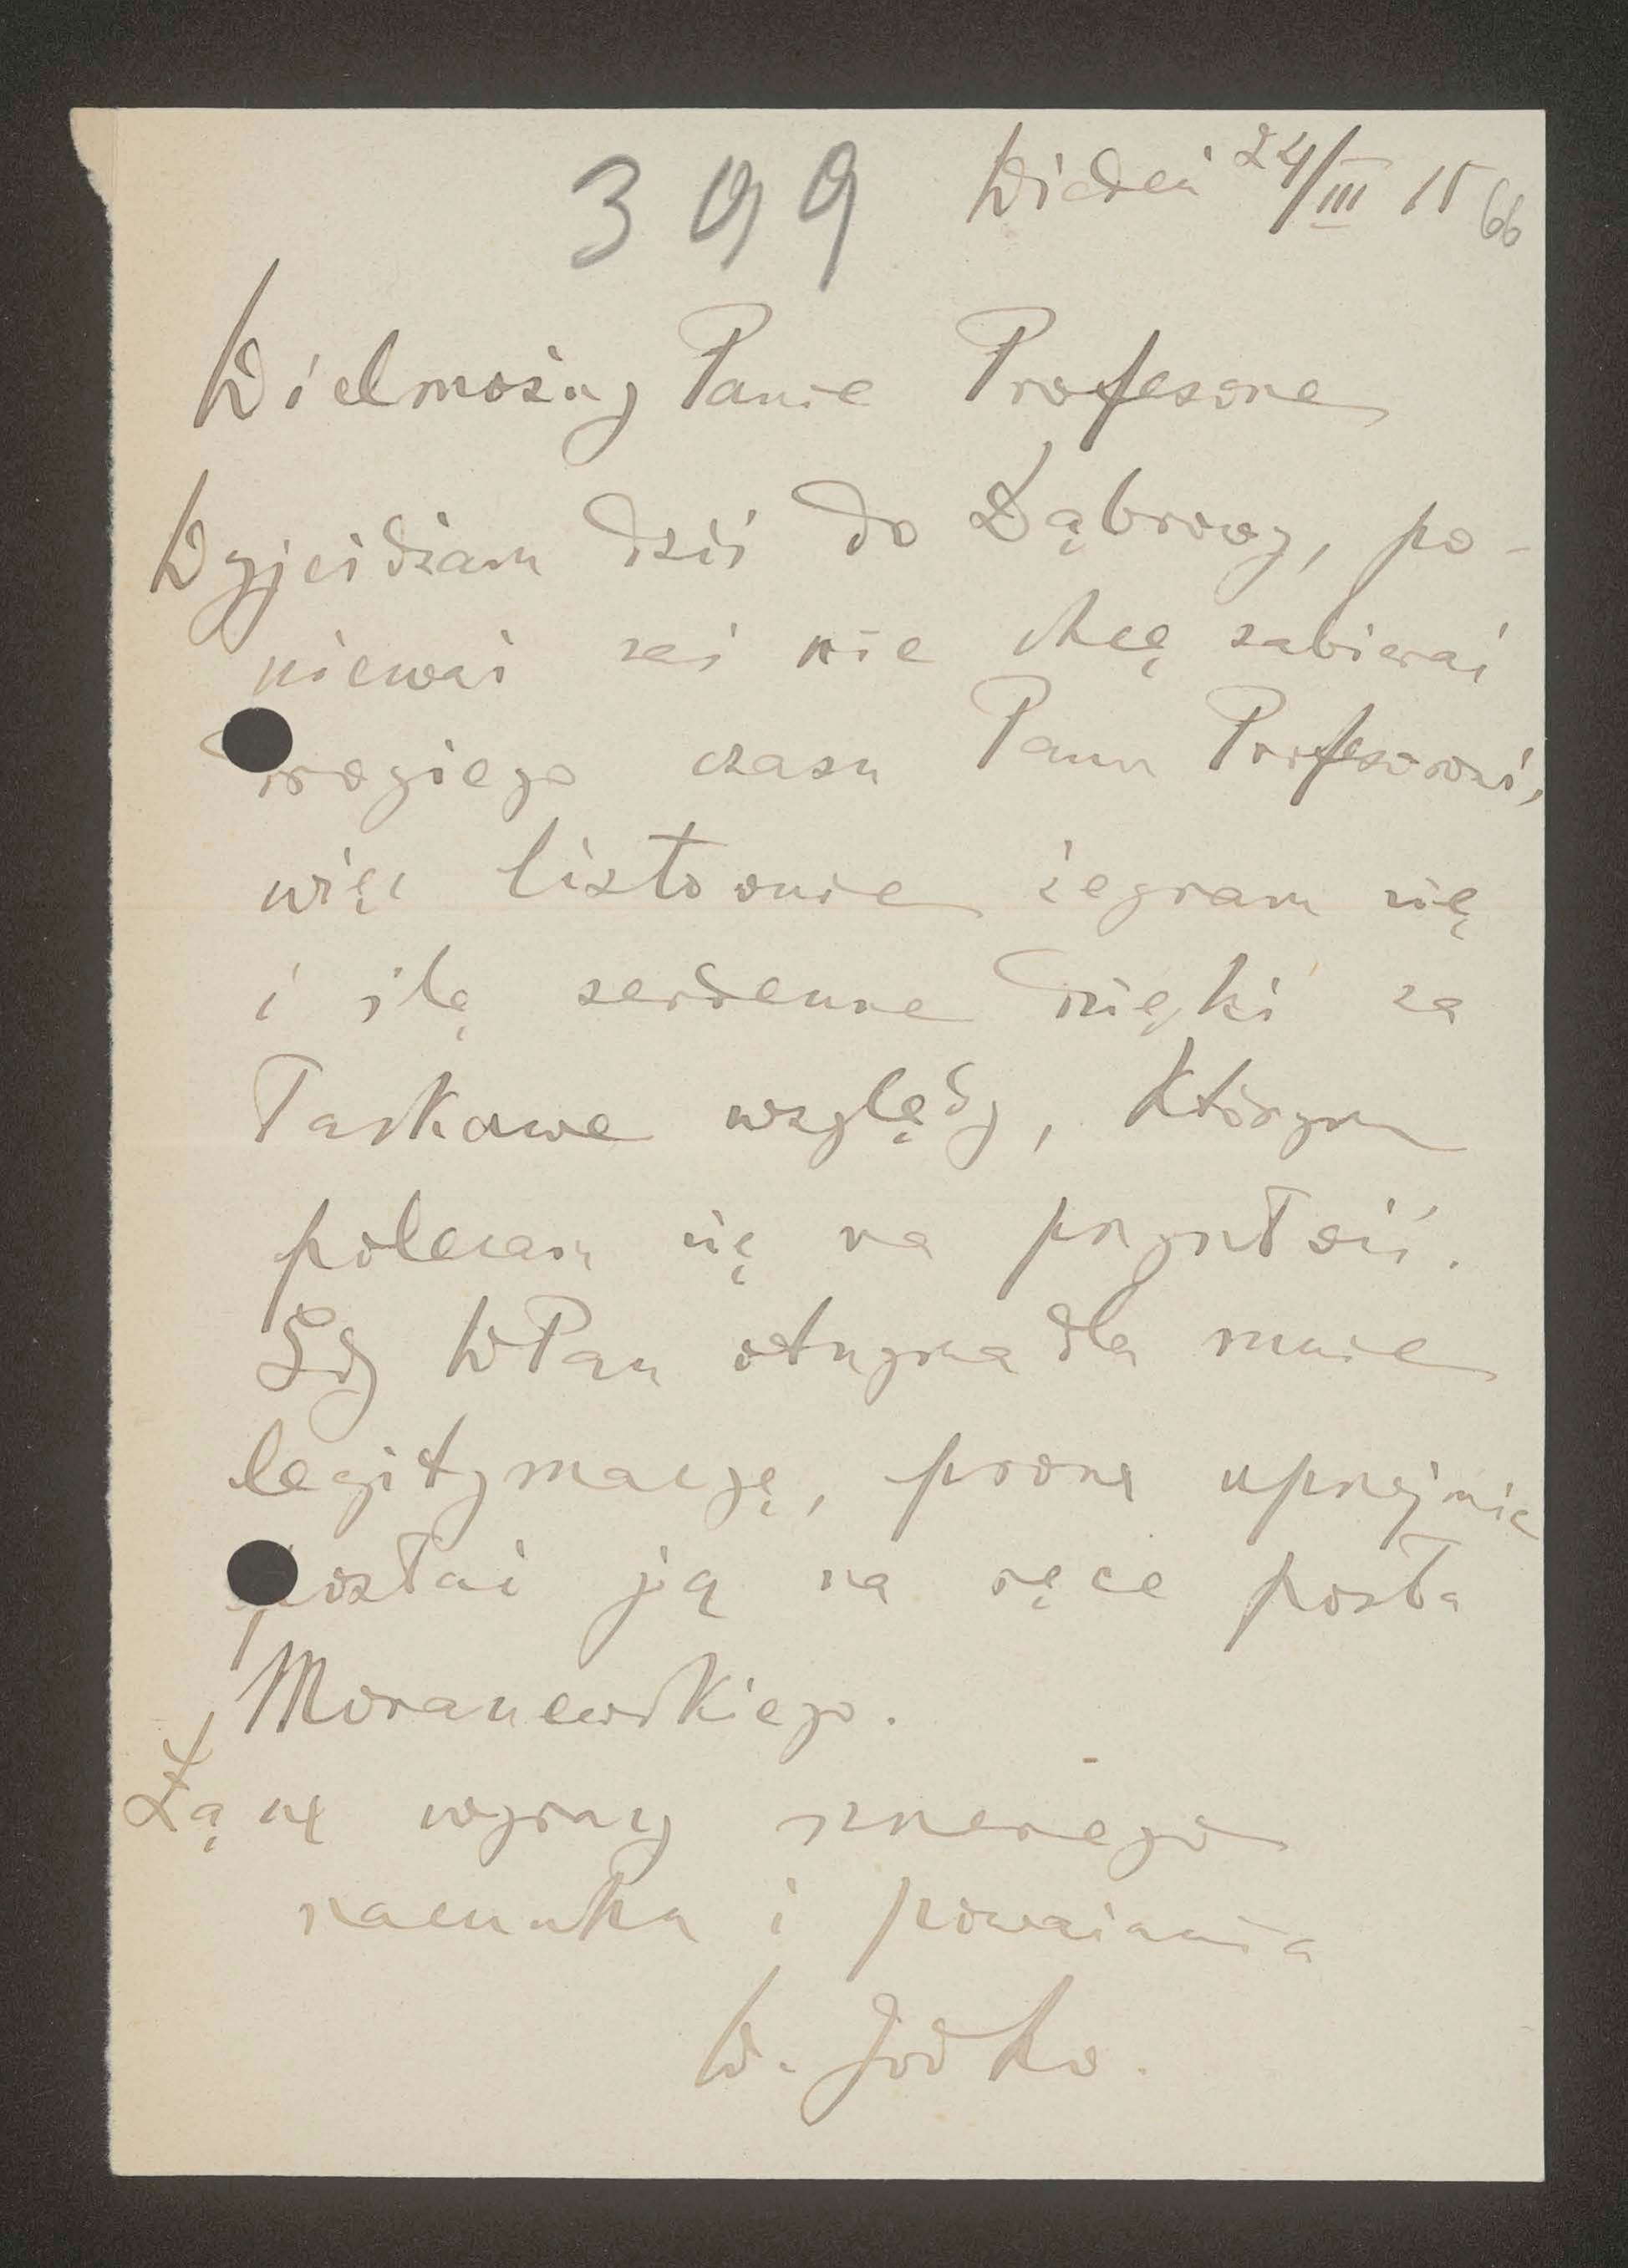 399 Wiedeń 24/III 15 66
Wielmożny Panie Profesorze
Wyjeżdżam dziś do Dąbrowy, po-
nieważ zaś nie chcę zabierać
drogiego czasu Panu Profesorowi,
więc listownie żegnam się
i ślę serdeczne dzięki za
łaskawe względy, którym
polecam się na przyszłość.
Gdy WPan otrzyma dla mnie
legitymacyę, proszę uprzejmie
posłać ją na ręce posła
Moraczewskiego.
Łączę wyrazy szczerego
szacunku i poważania
W. Jodko.